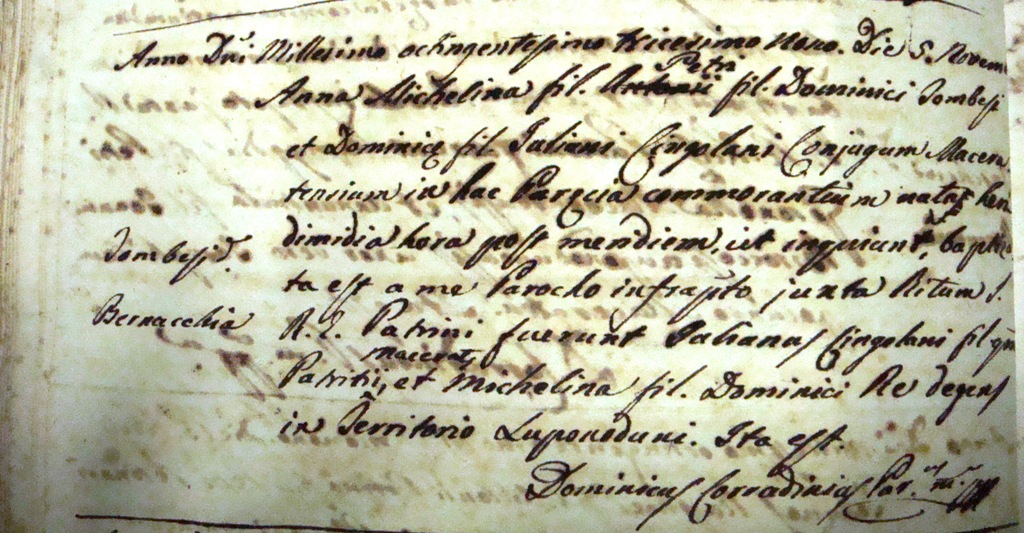 Anno Dñi Millesimo octingentesimo tricesimo nono. Die 5. Novem
Petri
Anna Michelina fil. Antonii fil. Dominici Tombesi
et Dominicę fil. Juliani Cingolani Conjugum Macera
tensium in hac Paręcia commorantium nata heri
dimidia hora post meridiem, ut inquiunt, baptiza
Tombesi
ta est a me Parocho infrapto juxta Ritum S.
Bernacchia
R. E. Patrini fuerunt Julianus Cingolani fil qm
macerat.
Patritii, et Michelina fil. Dominici Re degens
in Territorio Luponoduni. Ita est.
Dominicus Corradinius Par.